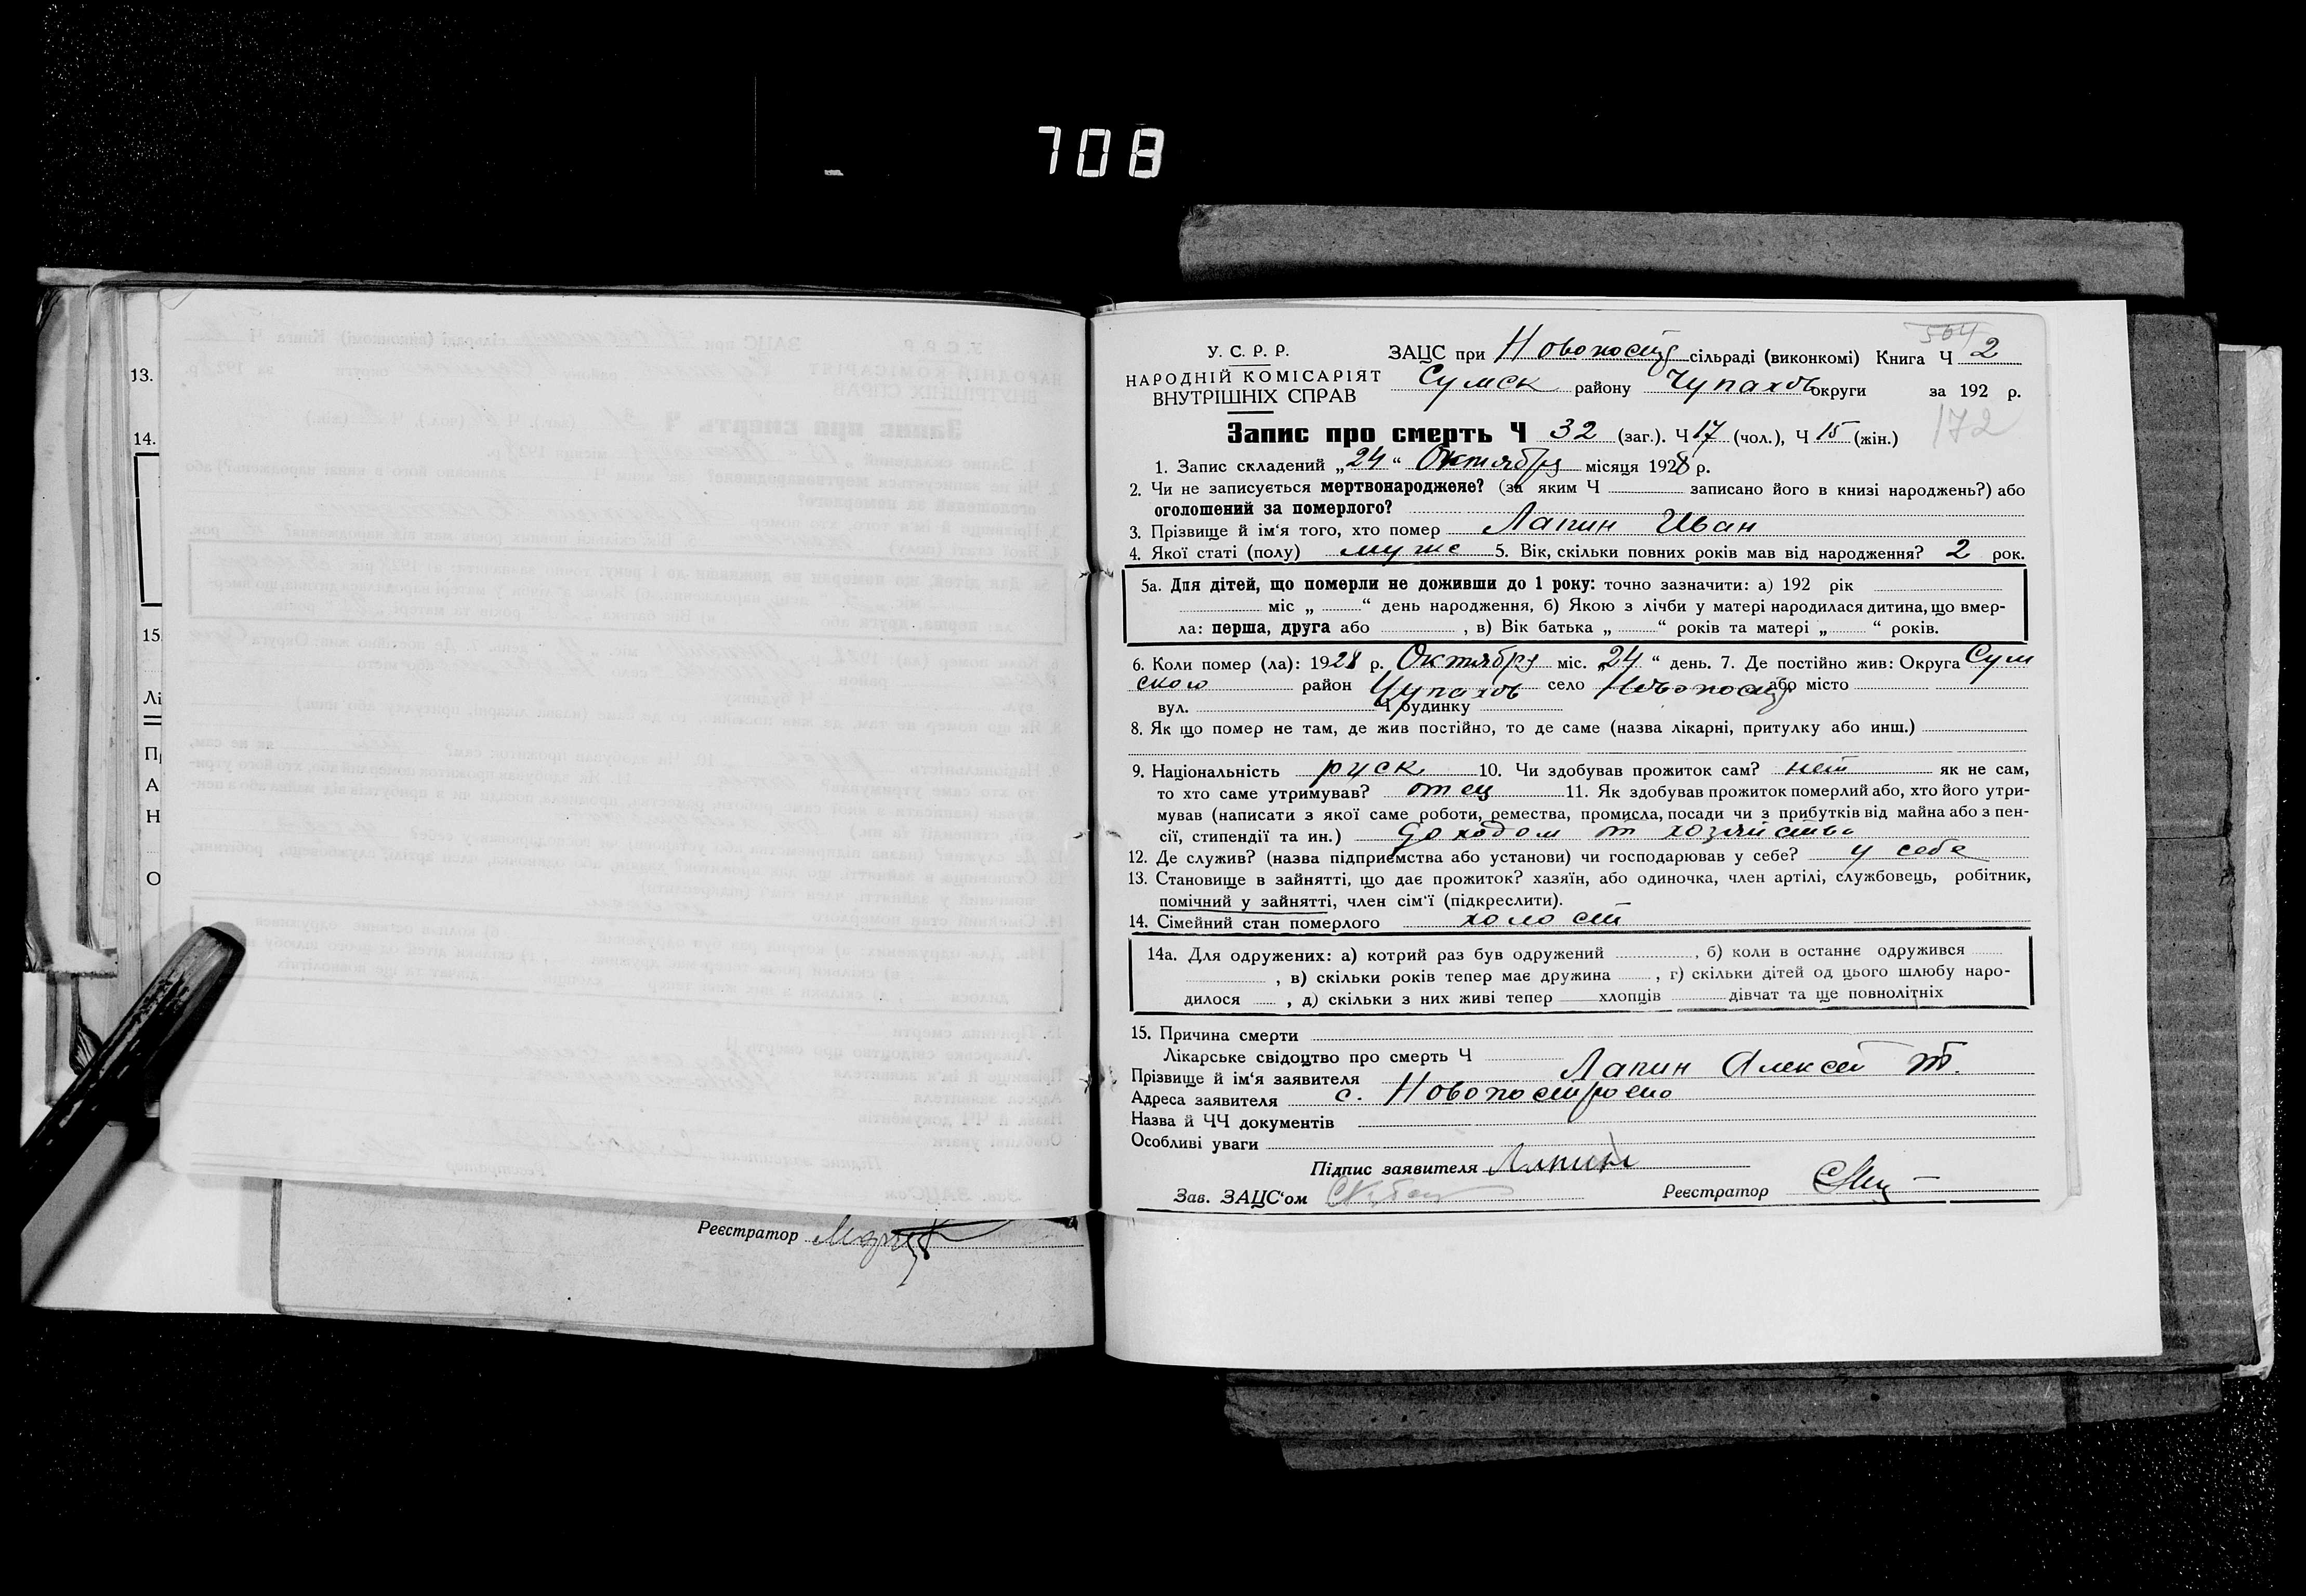 708
504
У. С. Р. Р. ЗАЦС при Новопостр сільраді (виконкомі) Книга Ч 2
НАРОДНІЙ КОМІСАРІЯТ Сумск району Чупахов округи за 192 р.
ВНУТРІШНІХ СПРАВ
172
Запис про смерть Ч 32 (заг.). Ч 17 (чол.), Ч 15 (жін.)
1. Запис складений „24“ Октября місяця 1928 р.
2. Чи не записується мертвонароджене? (за яким Ч записано його в книзі народжень?) або
оголошений за померлого?
3. Прізвище й ім‘я того, хто помер Лапин Иван
4. Якої статі (полу) муж 5. Вік, скільки повних років мав від народження? 2 рок.
5а. Для дітей, що померли не доживши до 1 року: точно зазначити: а) 192 рік
міс „ “ день народження, б) Якою з лічби у матері народилася дитина, що вмер-
ла: перша, друга або , в) Вік батька „ “ років та матері „ “ років.
6. Коли помер (ла): 1928 р. Октября міс. „24“ день. 7. Де постійно жив: Округа Сум
ского район Чупахов село або місто
вул. Ч будинку
8. Як що помер не там, де жив постійно, то де саме (назва лікарні, притулку або инш.)
9. Національність руск 10. Чи здобував прожиток сам? нет як не сам,
то хто саме утримував? отец 11. Як здобував прожиток померлий або, хто його утри-
мував (написати з якої саме роботи, ремества, промисла, посади чи з прибутків від майна або з пен-
сії, стипендії та ин.) доходом от хозяйства
12. Де служив? (назва підприємства або установи) чи господарював у себе? у себе
13. Становище в зайнятті, що дає прожиток? хазяїн, або одиночка, член артілі, службовець, робітник,
помічний у зайнятті, член сім‘ї (підкреслити).
14. Сімейний стан померлого холост
14а. Для одружених: а) котрий раз був одружений , б) коли в останнє одружився
, в) скільки років тепер має дружина , г) скільки дітей од цього шлюбу наро-
дилося , д) скільки з них живі тепер хлопців дівчат та ще повнолітніх
15. Причина смерти
Лікарське свідоцтво про смерть Ч
Прізвище й ім‘я заявителя Лапин Алексей Т.
Адреса заявителя с. Новопостроено
Назва й ЧЧ документів
Особливі уваги
Підпис заявителя Лапин
Зав. ЗАЦС‘ом Реєстратор
13.
14.
15
Лі
П
А
Н
О
Реєстратор